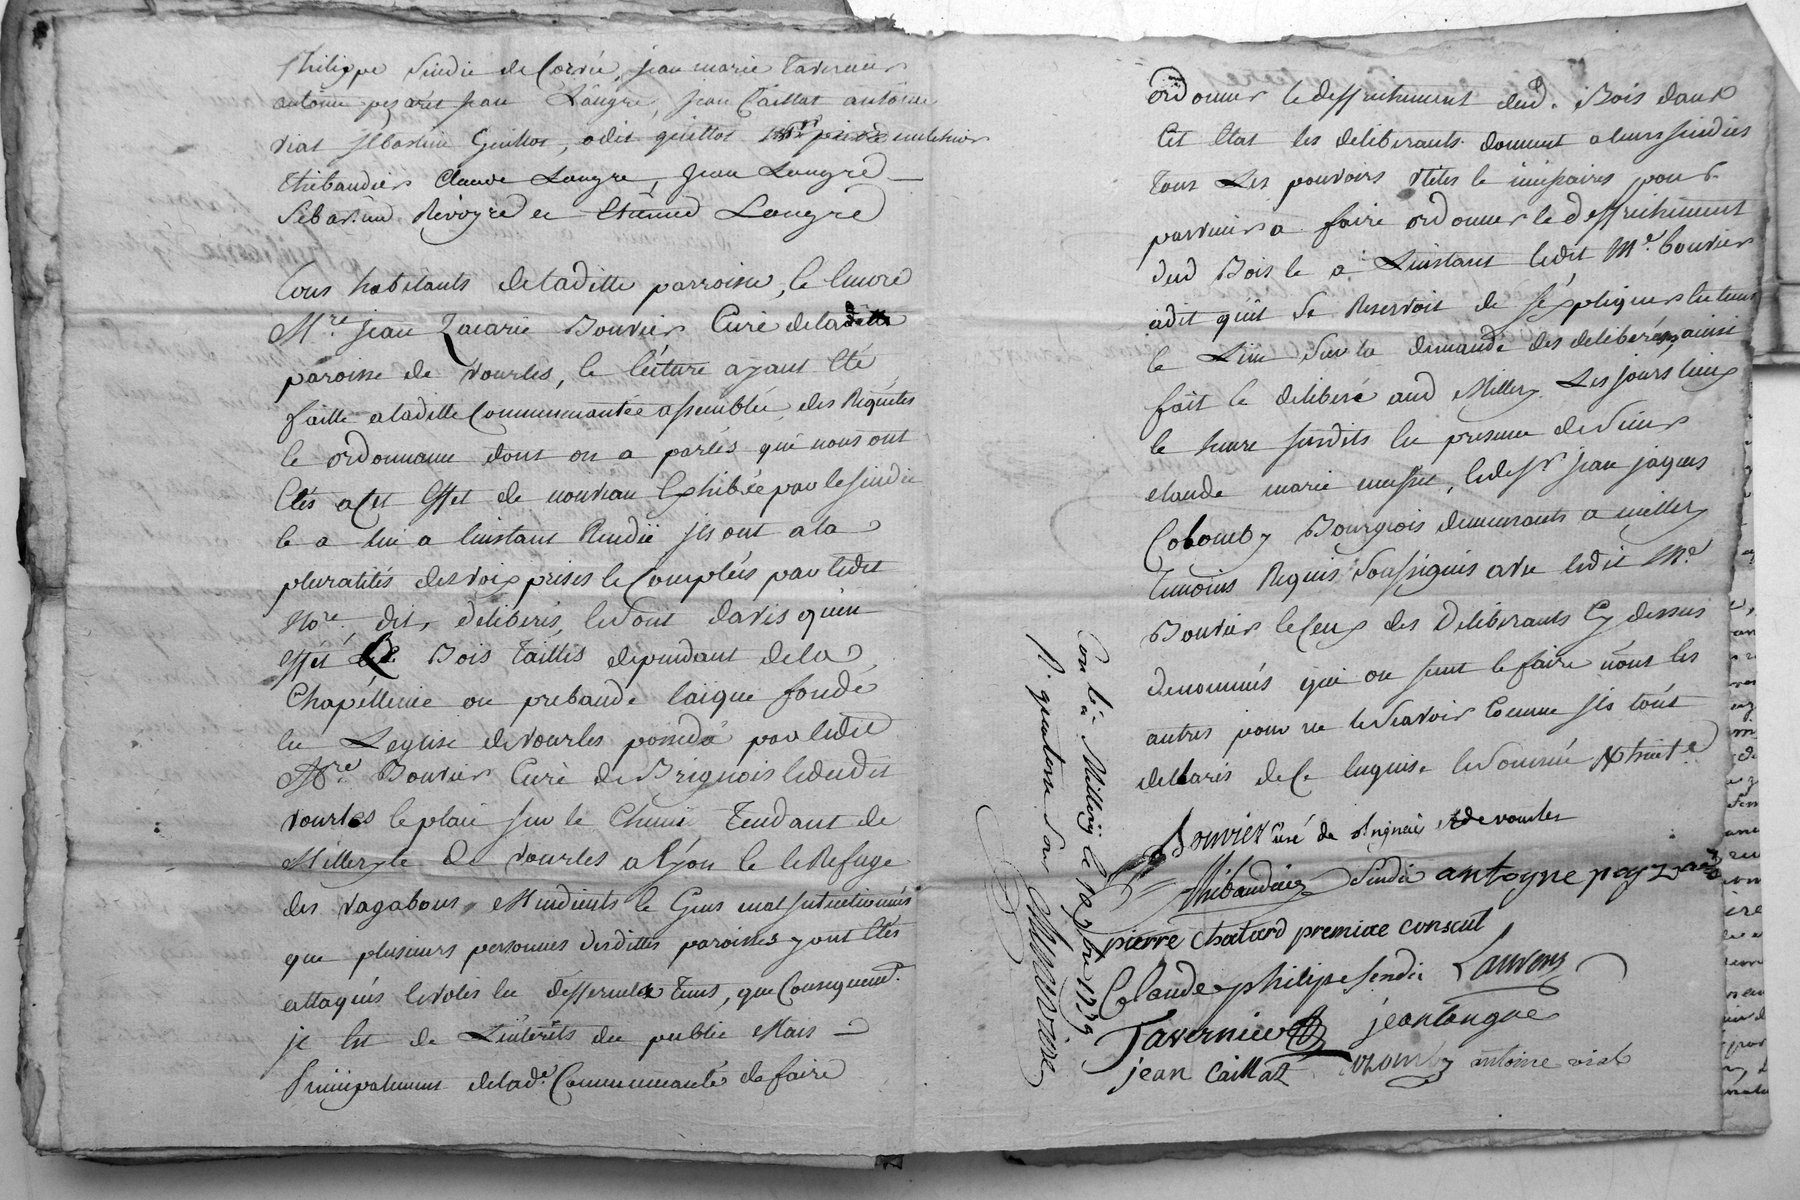 Philippe sindic de Corvée, jean marie Tavernier
antoine payzaret jean Langre, jean Caillat antoine
viat sebastien Guillot, adit guillot
thibaudier Claude Langre, Jean Langre
Sebastien Revoyre et Etienne Langre
tous habitants deladitte parroisse, et encore
Mre jean Zacarie Bouvier Curé deladitte
paroisse de vourles, et lecture ayant Eté
faitte aladitte Communeautée assemblée, des Requétes
et ordonnance dont on a parlés qui nous ont
Etés a Cet Effet de nouveau Exhibée par le sindic
et a lui a linstant Rendü jls ont ala
pluralités des voix prises et Comptés par ledit
Nore. dit, deliberés, et sont davis quen
effet Le Bois Taillis dependant de la
Chapellenie ou prebande laique fondé
en Leglise de vourles possedé par ledit
Mre. Bouvier Curé de Brignois et dudit
vourles et placé sur le Chemin Tendant de
Millery et de vourles a Lyon et le Refuge
des vagabons, Mendients et Gens mal jntentionnés
que plusieurs personnes desdittes paroisses y ont Etés
attaqués et volés en differents Tems, que Consequemt.
jl Est de Linterêts du public Mais
Principalement delade. Communeauté de faire
ordonner le deffrichement dud. Bois dans
Cet Etat les deliberants donnent a leurs sindics
tous Les pouvoirs utiles et necessaires pour
parvenir a faire ordonner le deffrichement
dud Bois et a Linstant ledit Me. bouvier
adit quil se Reservoit de s'expliquer en tems
et Lieu sur la demande des deliberés, ainsi
fait et deliberé aud Millery Les jours lieux
et heure susdits en presence de sieur
claude marie , et de sr jean jaques
Colomby Bourgeois demeurants a millery
temoins Requis soussignés avec ledit Me
Bouvier et Ceux des Deliberants Cy dessus
denommés qui on sceut le faire non les
autres pour ne le scavoir Comme jls l'ont
declarés de Ce enquis et sommé
Bouvier curé de brignais et de vourles
thibaudier sindic antoyne payzaret
pierre chatard premiae conseul
Claude philipe sendic Laurens
Tavernier jean langre
jean Caillat colomby antoine viat
Con lé a Millery le 10 xbre 1739
R. quatorze sols